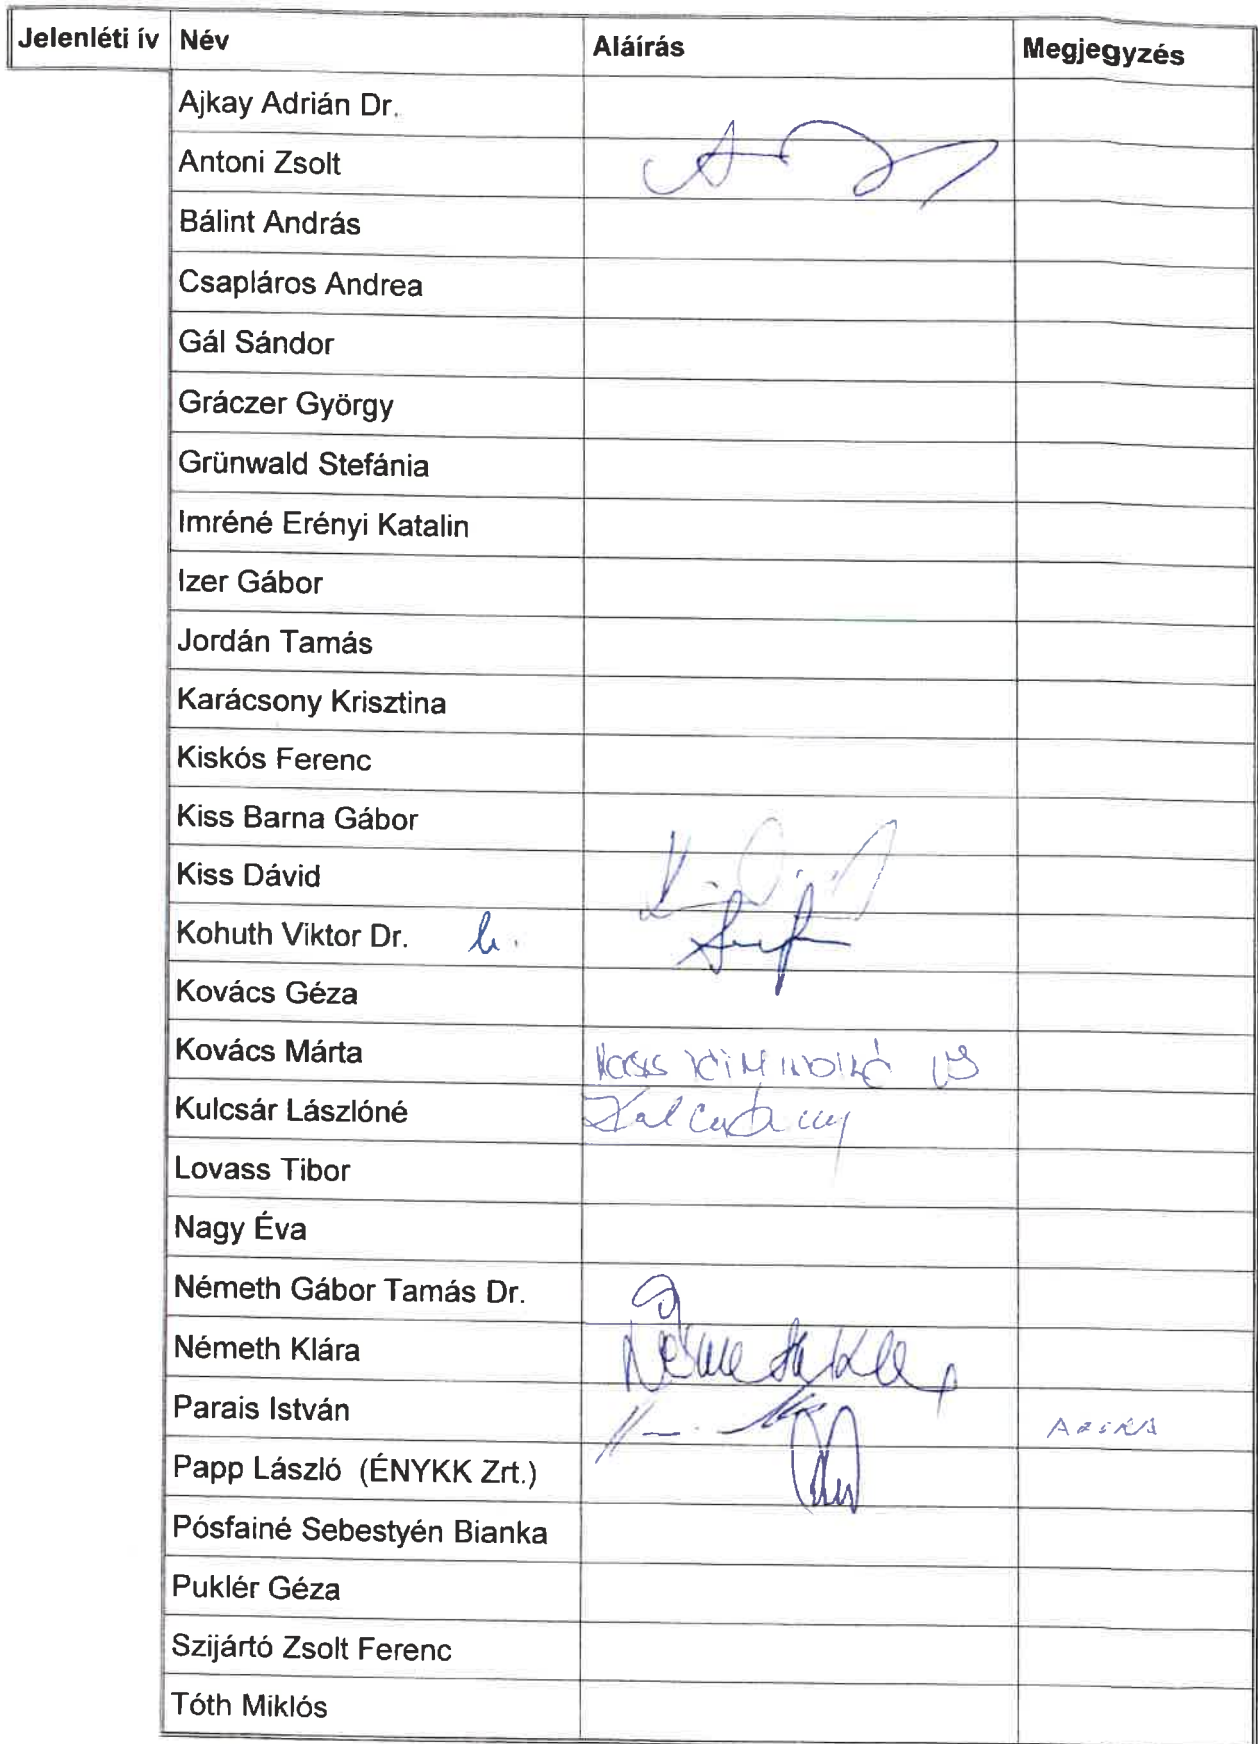 Jelenléti ív Név Aláírás Megjegyzés
Ajkay Adrián Dr.
Antoni Zsolt
Bálint András
Csapláros Andrea
Gál Sándor
Gráczer György
Grünwald Stefánia
Imréné Erényi Katalin
Izer Gábor
Jordán Tamás
Karácsony Krisztina
Kiskós Ferenc
Kiss Barna Gábor
Kiss Dávid
Kohuth Viktor Dr.
Kovács Géza
Kovács Márta
Kulcsár Lászlóné
Lovass Tibor
Nagy Éva
Németh Gábor Tamás Dr.
Németh Klára
Parais István
Papp László (ÉNYKK Zrt.)
Pósfainé Sebestyén Bianka
Puklér Géza
Szijártó Zsolt Ferenc
Tóth Miklós